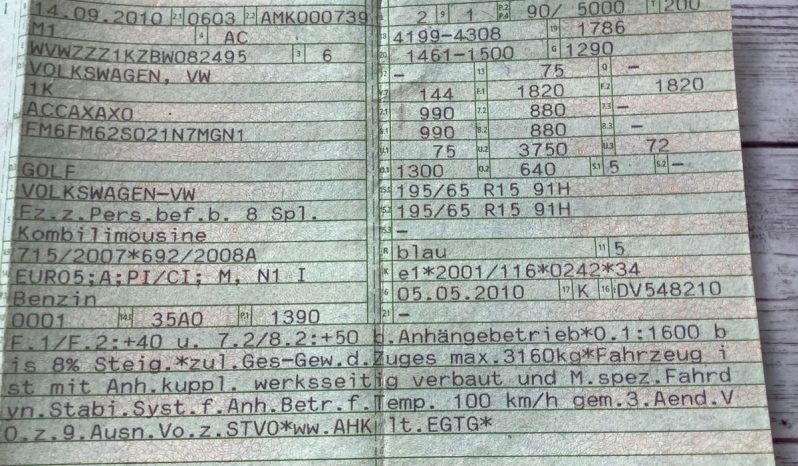 14.09.2010 2.1 0603 2.2 AMK000739
M1 4 AC
WVWZZZ1KZBW082495 3 6
VOLKSWAGEN, VW
1K
ACCAXAX0
FM6FM62S021N7MGN1
GOLF
VOLKSWAGEN-VW
Fz.z.Pers.bef.b. 8 Spl.
Kombilimousine
715/2007*692/2008A
EURO5;A;PI/CI; M, N1 I
Benzin
0001 14.1 35A0 P.1 1390
L 2 9 1 P.2 P.4 90/ 5000 T 200
18 4199-4308 19 1786
20 1461-1500 G 1290
12 – 13 75 Q –
V.7 144 F.1 1820 F.2 1820
7.1 990 7.2 880 7.3 –
8.1 990 8.2 880 8.3 –
U.1 75 U.2 3750 U.3 72
O.1 1300 O.2 640 S.1 5 S.2 –
15.1 195/65 R15 91H
15.2 195/65 R15 91H
15.3 –
R blau 11 5
K e1*2001/116*0242*34
6 05.05.2010 17 K 16 DV548210
21 –
F.1/F.2:+40 u. 7.2/8.2:+50 b.Anhängebetrieb*O.1:1600 b
is 8% Steig.*zul.Ges-Gew.d.Zuges max.3160kg*Fahrzeug i
st mit Anh.kuppl. werksseitig verbaut und M.spez.Fahrd
yn.Stabi.Syst.f.Anh.Betr.f.Temp. 100 km/h gem.3.Aend.V
O.z.9.Ausn.Vo.z.STVO*ww.AHK lt.EGTG*